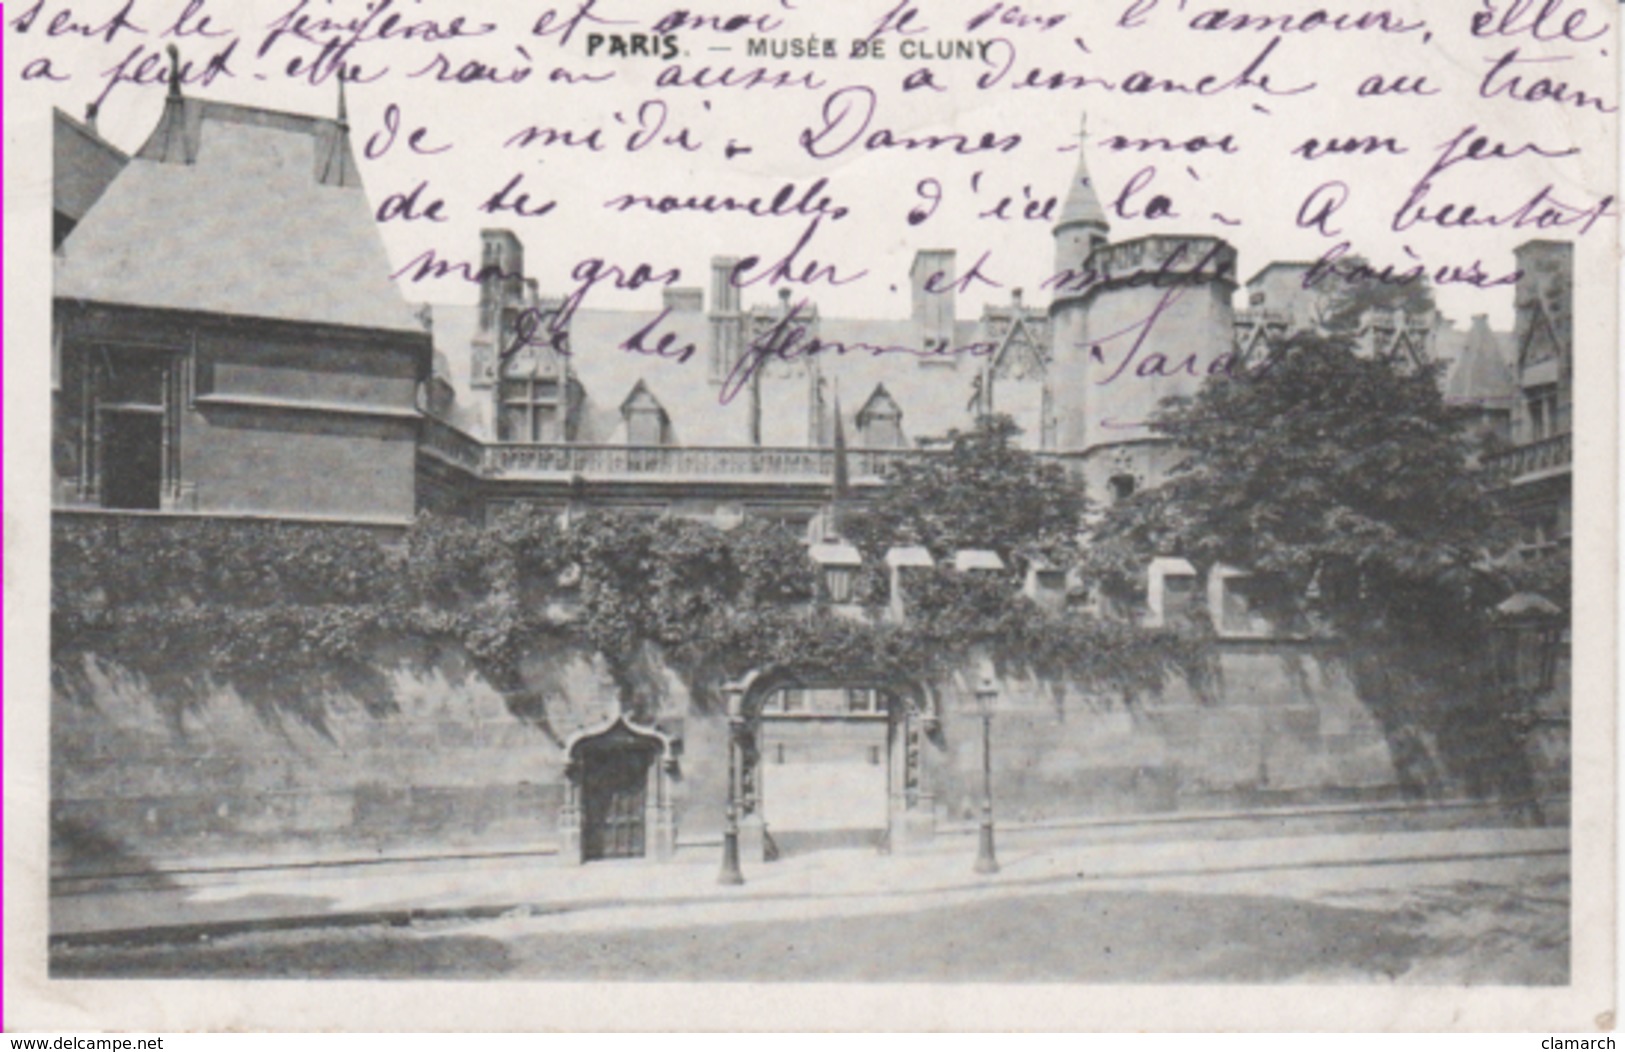 sent le genièvre et moi je sens l'amour, elle
PARIS. — MUSÉE DE CLUNY
a peut-être raison aussi a dimanche au train
de midi. Donnes-moi un peu
de tes nouvelles d'ici là - A bientot
mon gros cher et mille baisers
de tes femmes Sarah
www.delcampe.net
clamarch